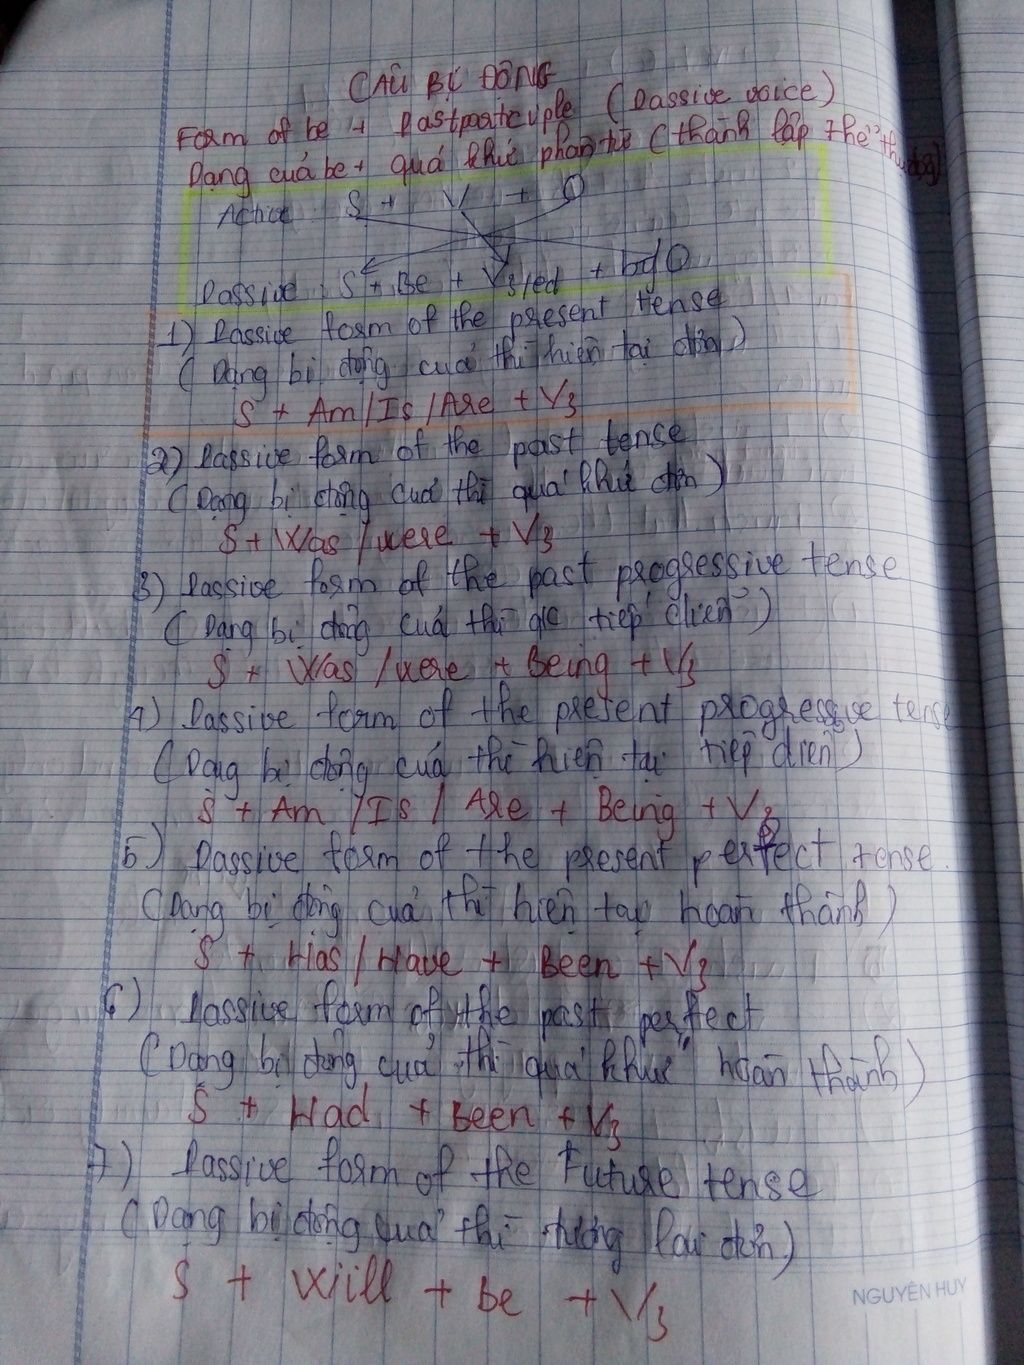 CÂU BỊ ĐỘNG
Form of be + Past participle (Passive voice)
Dạng của be + quá khứ phân từ (thành lập thể
Active S + V + O
Passive S + Be + V3/ed + by O
1) Passive form of the present tense
(Dạng bị động của thì hiện tại đơn)
S + Am/Is/Are + V3
2) Passive form of the past tense
(Dạng bị động của thì quá khứ đơn)
S + Was/were + V3
3) Passive form of the past progressive tense
(Dạng bị động của thì qk tiếp diễn)
S + Was/were + Being + V3
4) Passive form of the present progressive tense
(Dạng bị động của thì hiện tại tiếp diễn)
S + Am/Is/Are + Being + V3
5) Passive form of the present perfect tense.
(Dạng bị động của thì hiện tại hoàn thành)
S + Has/Have + Been + V3
6) Passive form of the past perfect
(Dạng bị động của thì quá khứ hoàn thành)
S + Had + Been + V3
7) Passive form of the Future tense
(Dạng bị động của thì tương lai đơn)
S + Will + be + V3
NGUYÊN HUY